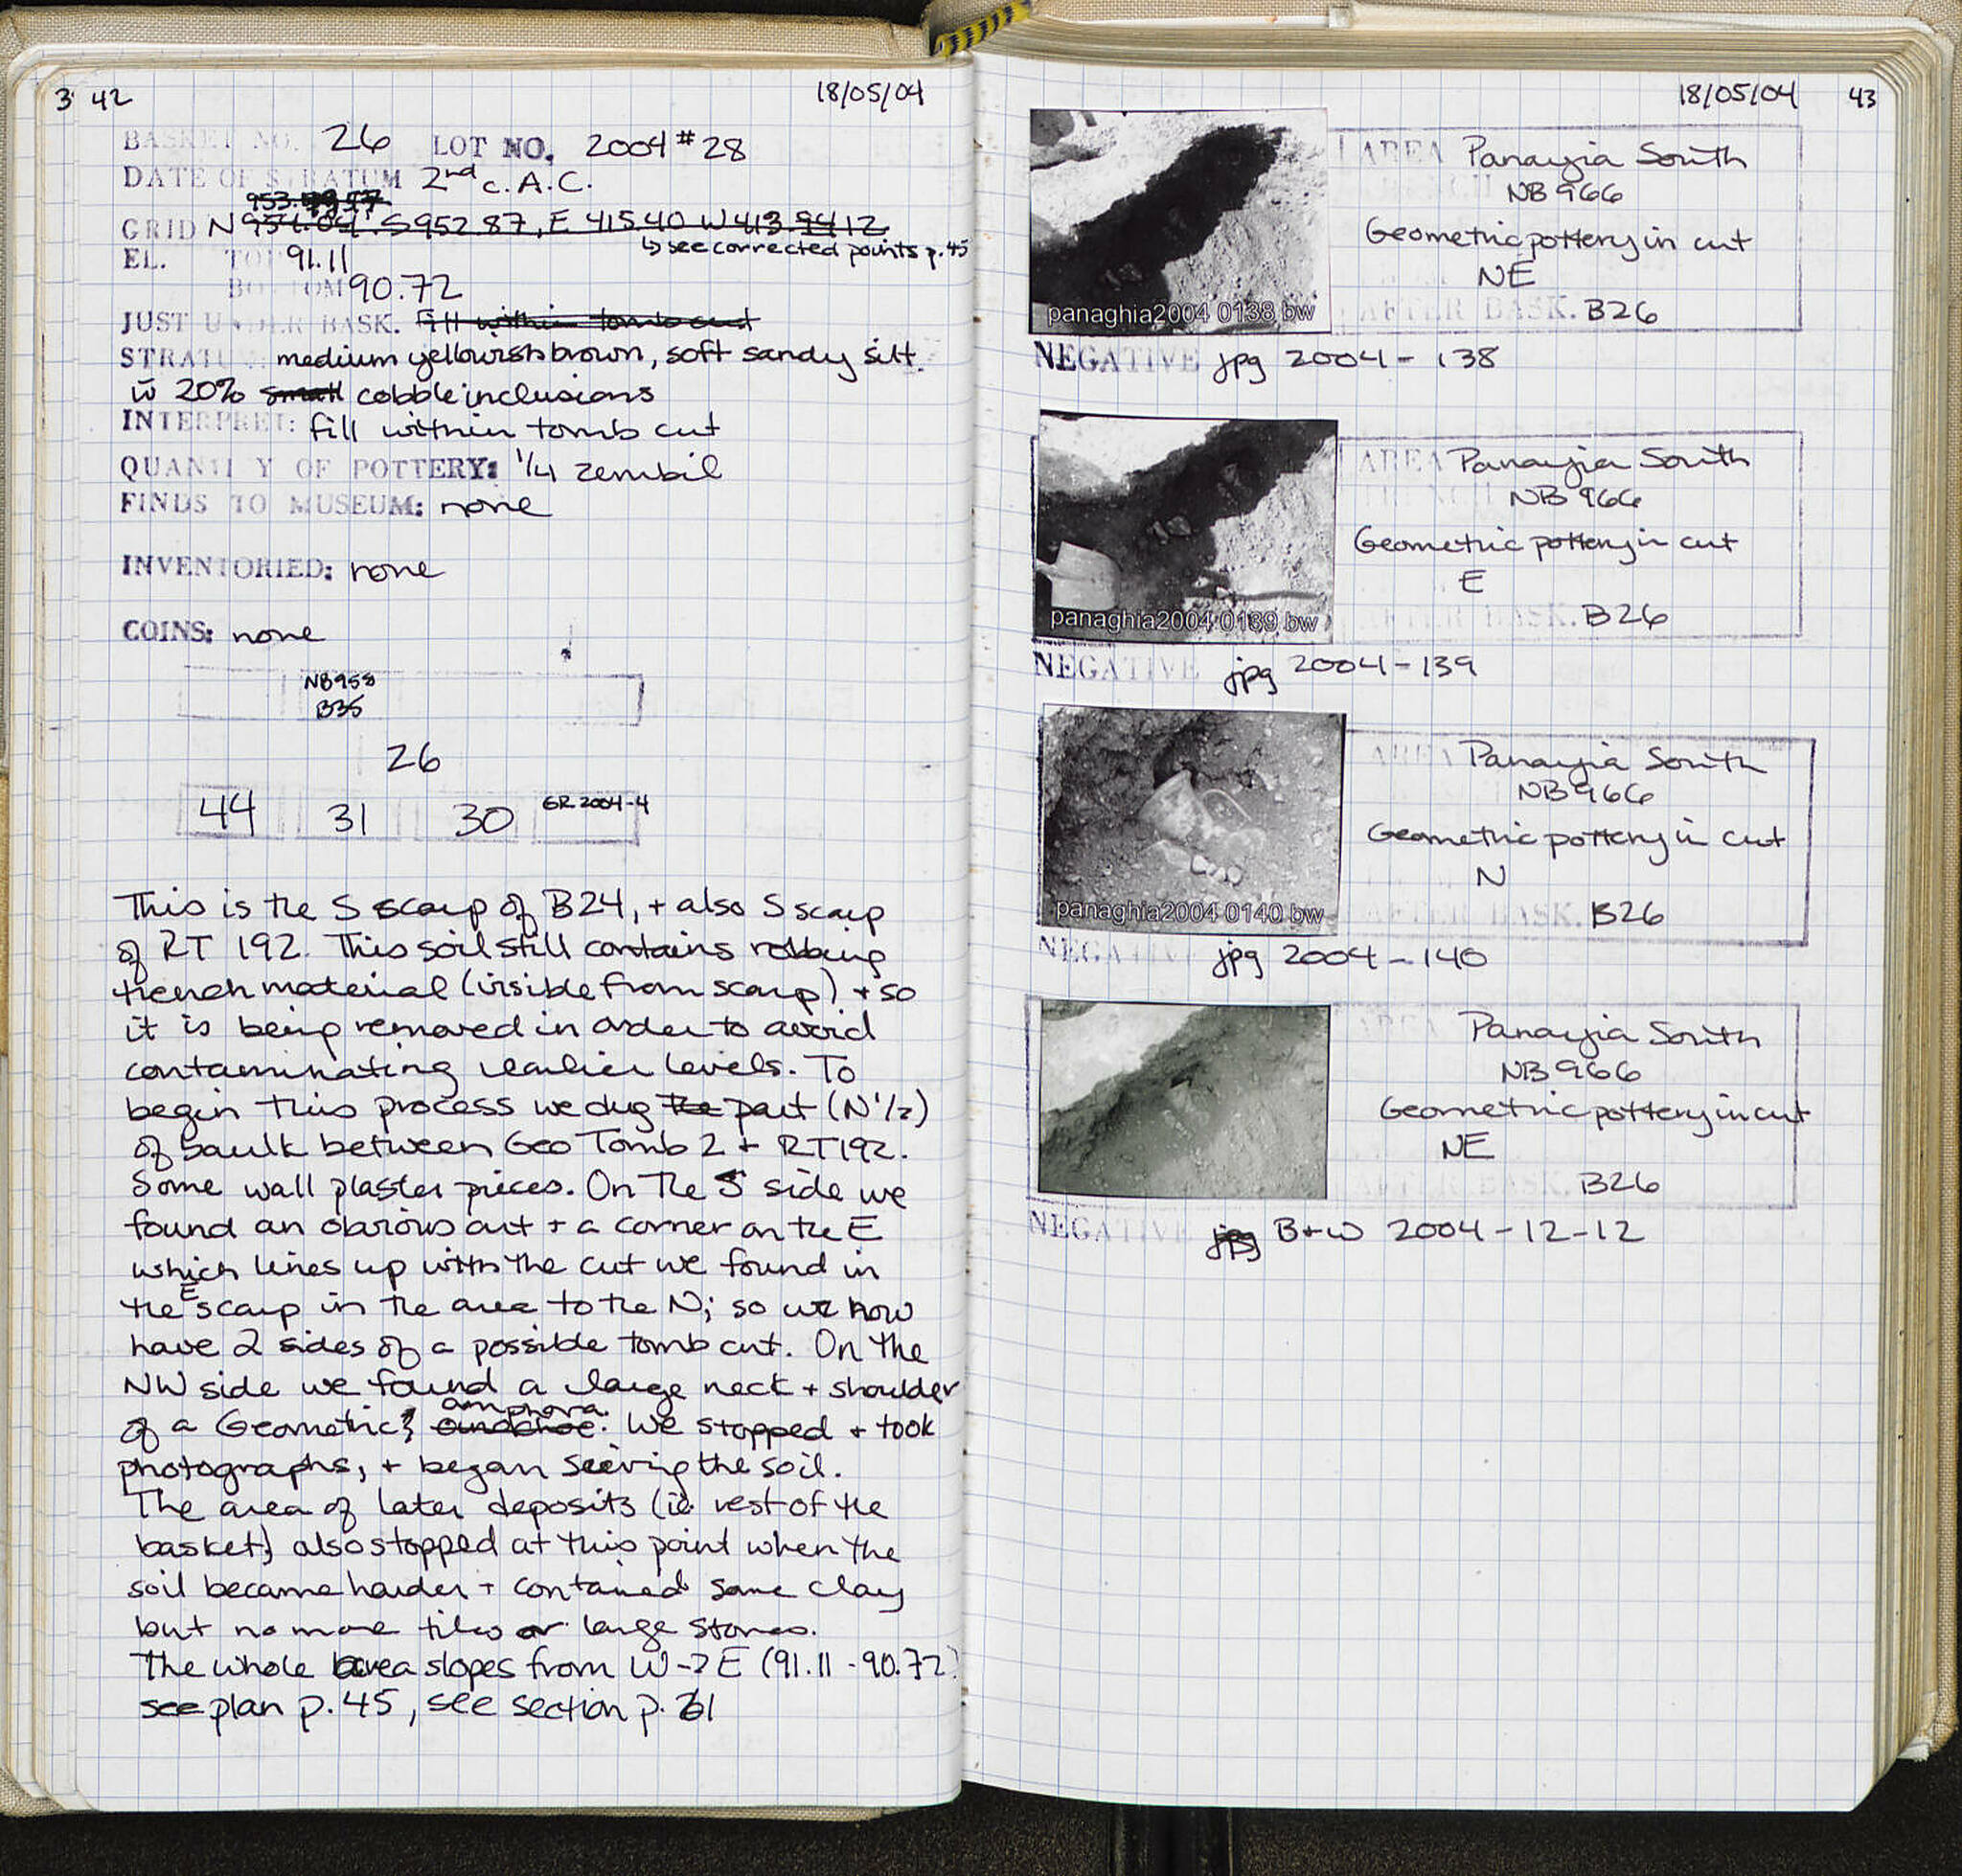 3 42 18/05/04
BASKET NO. 26 LOT NO. 2004 #28
DATE OF STRATUM 2nd c. A.C.
GRID N 954.04 S 952.87, E 415.40 W 413.94 12
↳ see corrected points p. 45
EL. TOP 91.11
BOTTOM 90.72
JUST UNDER BASK. fill within tomb cut
STRATUM: medium yellowish brown, soft sandy silt.
w̄ 20% small cobble inclusions
INTERPRET: fill within tomb cut
QUANTITY OF POTTERY: 1/4 zembil
FINDS TO MUSEUM: none
INVENTORIED: none
COINS: none
NB958
B35
26
44 31 30 GR 2004-4
This is the S scarp of B24, + also S scarp
of RT 192. This soil still contains robbing
trench material (visible from scarp) + so
it is being removed in order to avoid
contaminating earlier levels. To
begin this process we dug the part (N 1/2)
of baulk between Geo Tomb 2 + RT192.
Some wall plaster pieces. On the S side we
found an obvious cut + a corner on the E
which lines up with the cut we found in
the E scarp in the area to the N; so we now
have 2 sides of a possible tomb cut. On the
NW side we found a large neck + shoulder
of a Geometric oinochoe amphora. We stopped + took
photographs, + began sieving the soil.
The area of later deposits (ie. rest of the
basket) also stopped at this point when the
soil became harder + contained some clay
but no more tiles or large stones.
The whole area slopes from W->E (91.11 - 90.72)
see plan p. 45, see section p. 61
18/05/04 43
panaghia2004 0138 bw
AREA Panayia South
NB 966
Geometric pottery in cut
NE
AFTER BASK. B26
NEGATIVE jpg 2004 - 138
panaghia2004 0139 bw
AREA Panayia South
NB 966
Geometric pottery in cut
E
AFTER BASK. B26
NEGATIVE jpg 2004 - 139
panaghia2004 0140 bw
AREA Panayia South
NB 966
Geometric pottery in cut
N
AFTER BASK. B26
NEGATIVE jpg 2004 - 140
AREA Panayia South
NB 966
Geometric pottery in cut
NE
AFTER BASK. B26
NEGATIVE jpg B+W 2004 - 12 - 12